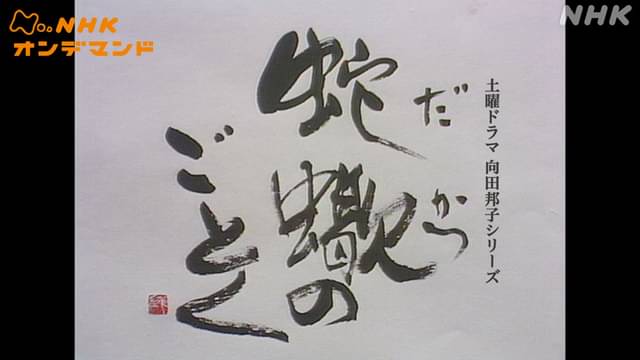 NHK
オンデマンド
NHK
土曜ドラマ 向田邦子シリーズ
だかつ
蛇蠍の
ごとく